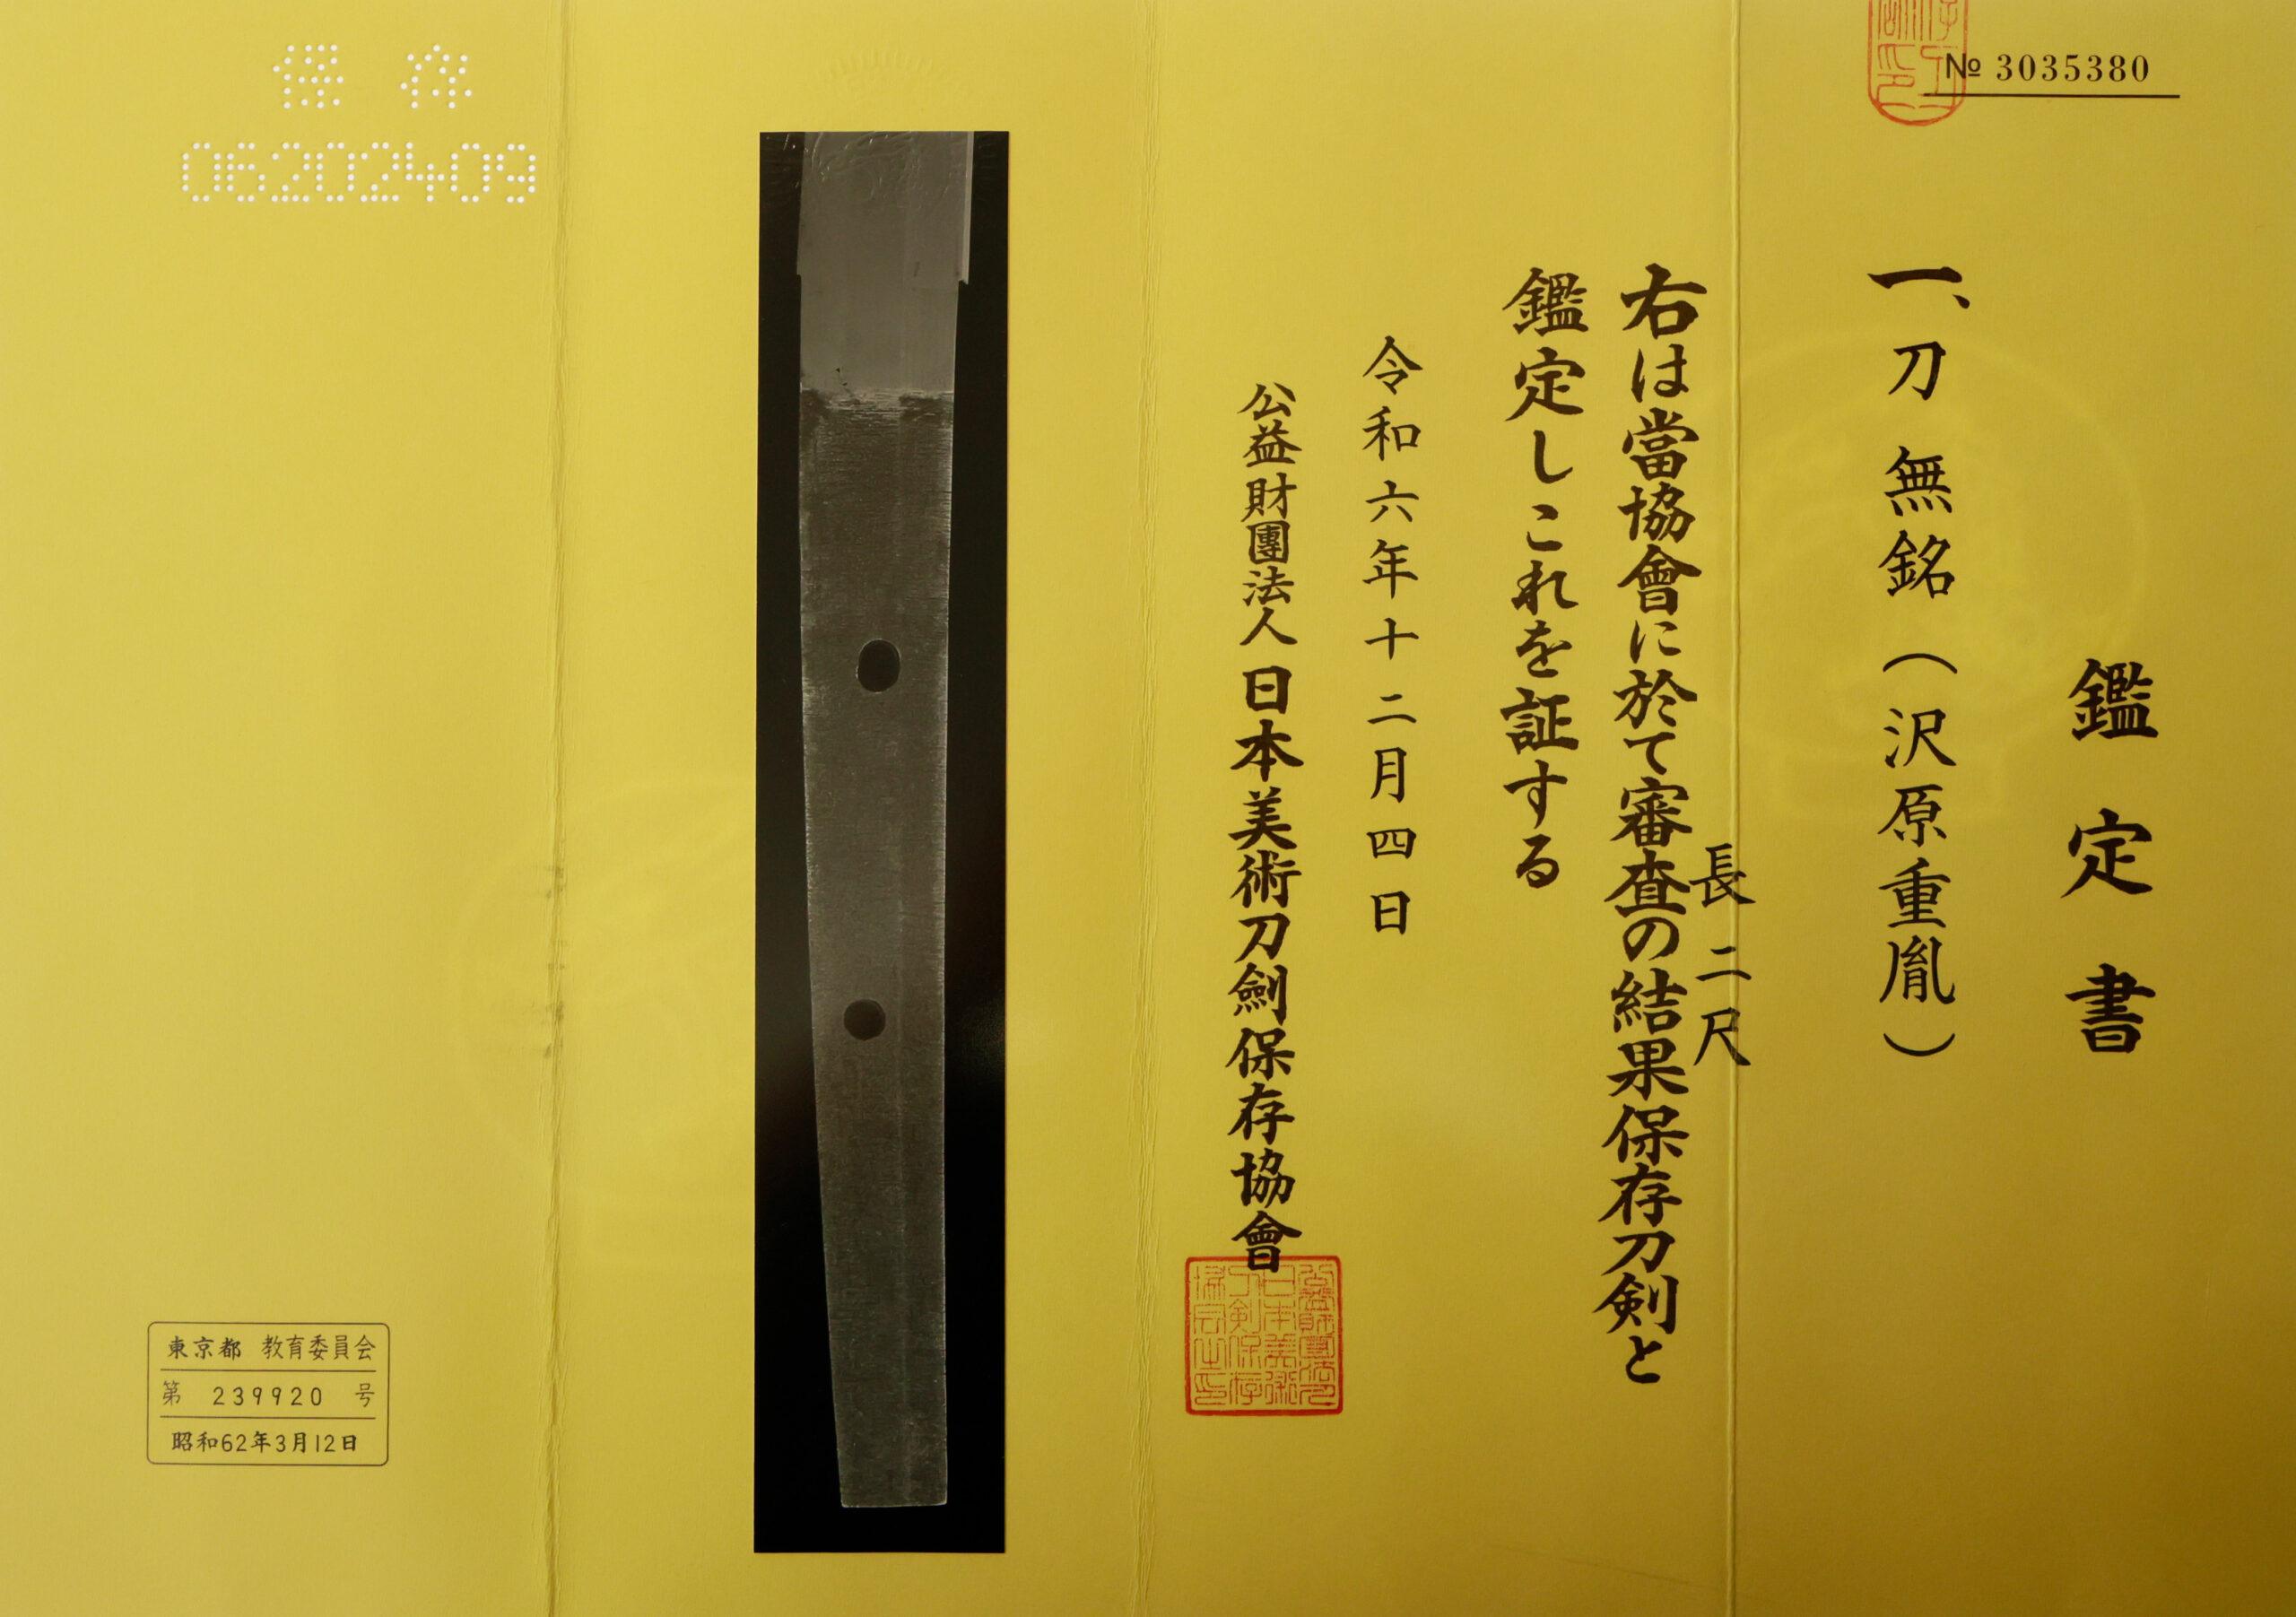 № 3035380
鑑定書
一、刀 無銘（沢原重胤）
長 二尺
右は當協會に於て審査の結果保存刀剣と
鑑定しこれを証する
令和六年十二月四日
公益財團法人 日本美術刀劍保存協會
保存
06202409
東京都 教育委員会
第 239920 号
昭和62年3月12日